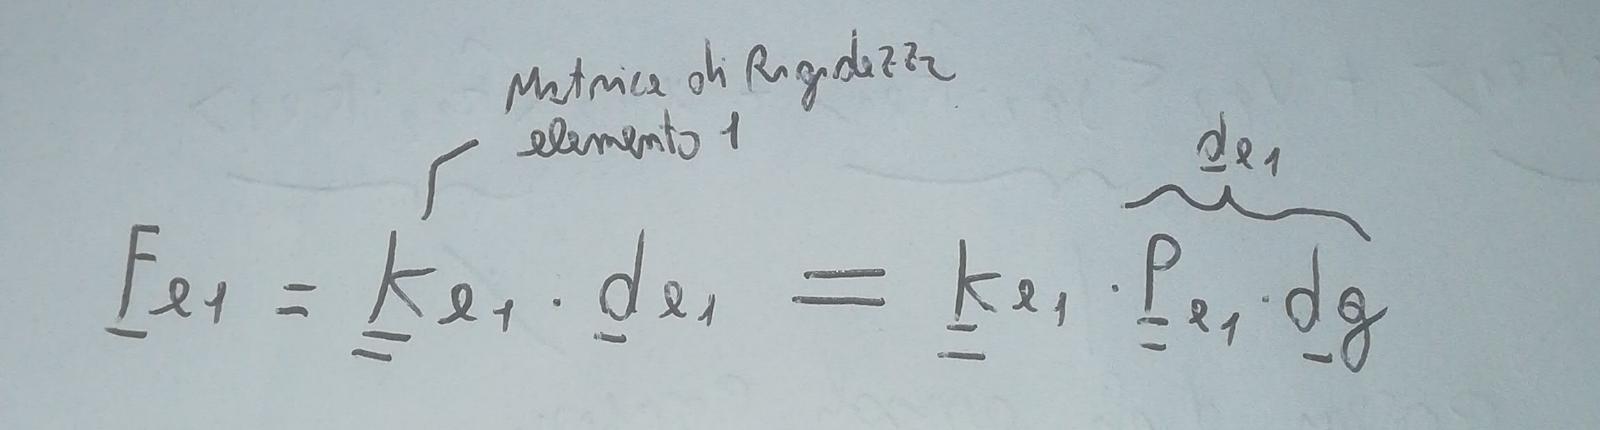 Matrice di Rigidezza
elemento 1
d̲e1
F̲e1 = K̳e1 · d̲e1 = K̳e1 · P̳e1 · d̲g